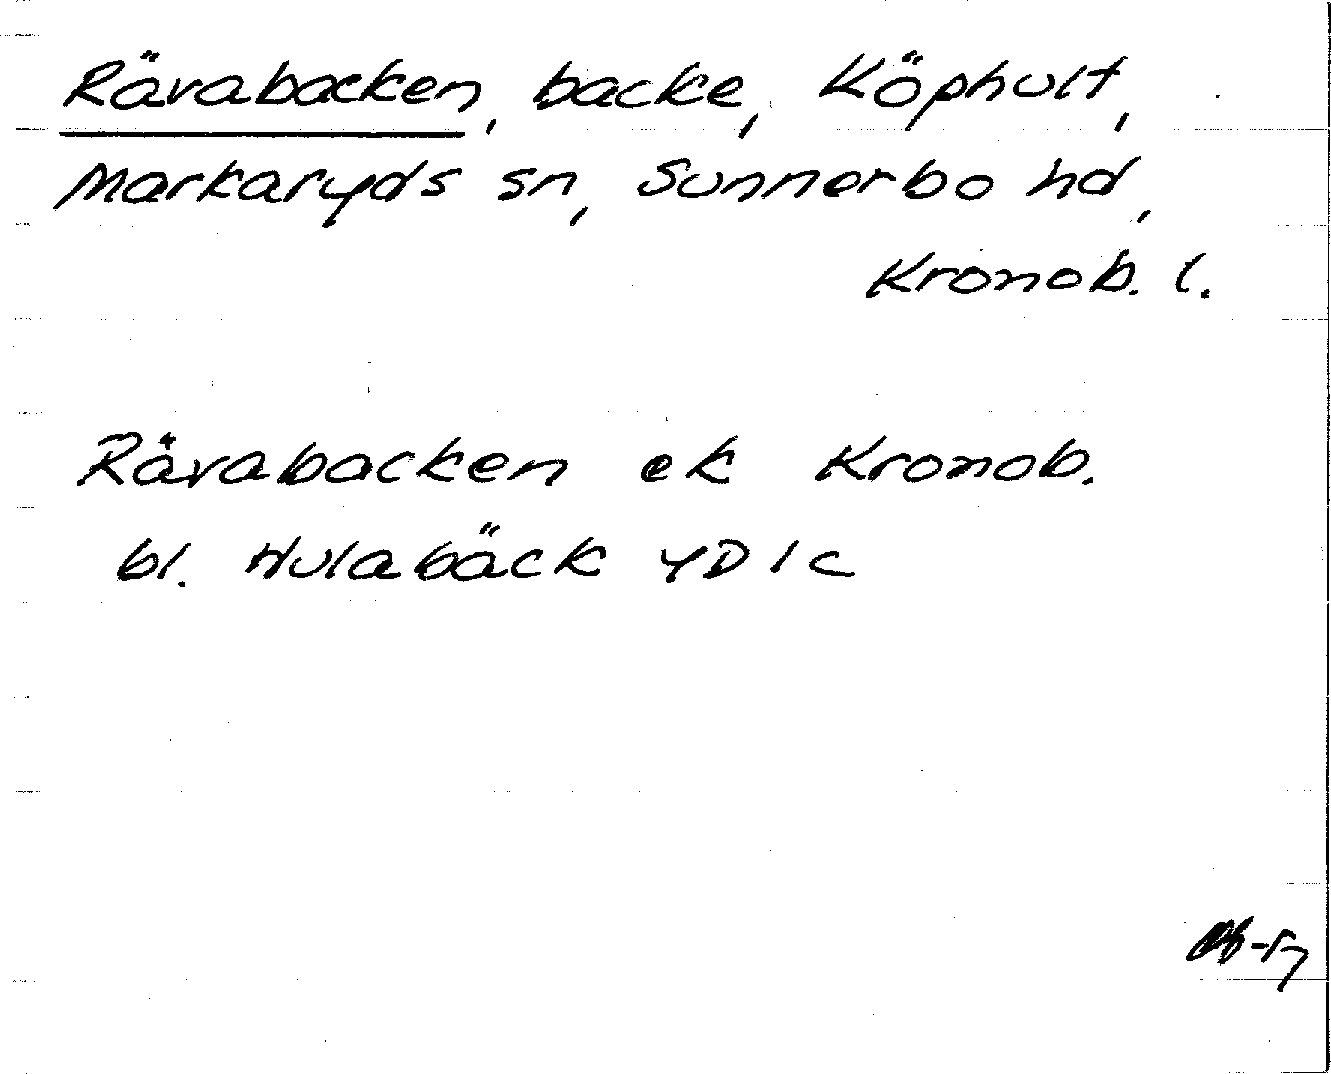 Rävabacken, backe, Köphult,
Markaryds sn, Sunnerbo hd,
Kronob. l.
Rävabacken ek Kronob.
bl. Hulabäck YD1c